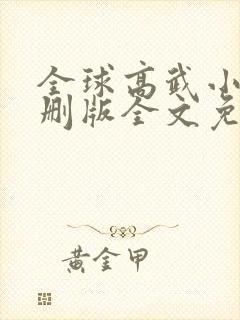 全球高武小
删版全文免
黄金甲